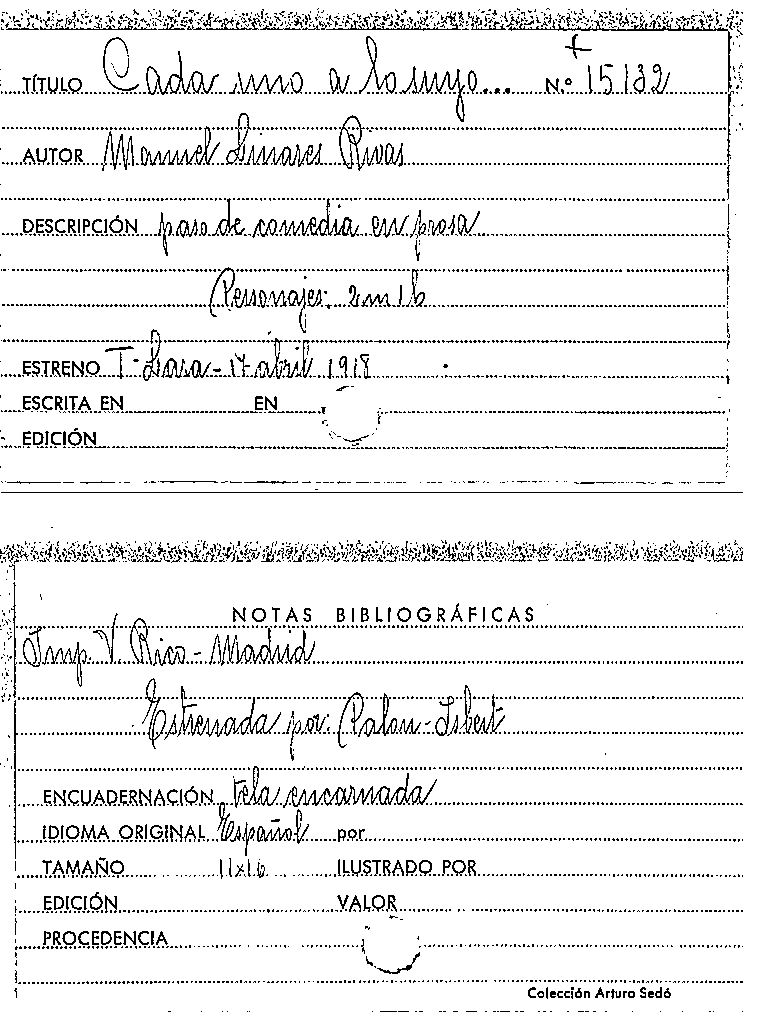 +
TÍTULO Cada uno a lo suyo... N.º 15132
AUTOR Manuel Linares Rivas
DESCRIPCIÓN paso de comedia en prosa
Personajes: 2m 1h
ESTRENO T. Lara - 17 abril 1918
ESCRITA EN EN
EDICIÓN
NOTAS BIBLIOGRÁFICAS
Imp. V. Rico - Madrid
Estrenada por: Palou - Isbert
ENCUADERNACIÓN tela encarnada
IDIOMA ORIGINAL Español por
TAMAÑO 11x16 ILUSTRADO POR
EDICIÓN VALOR
PROCEDENCIA
Colección Arturo Sedó